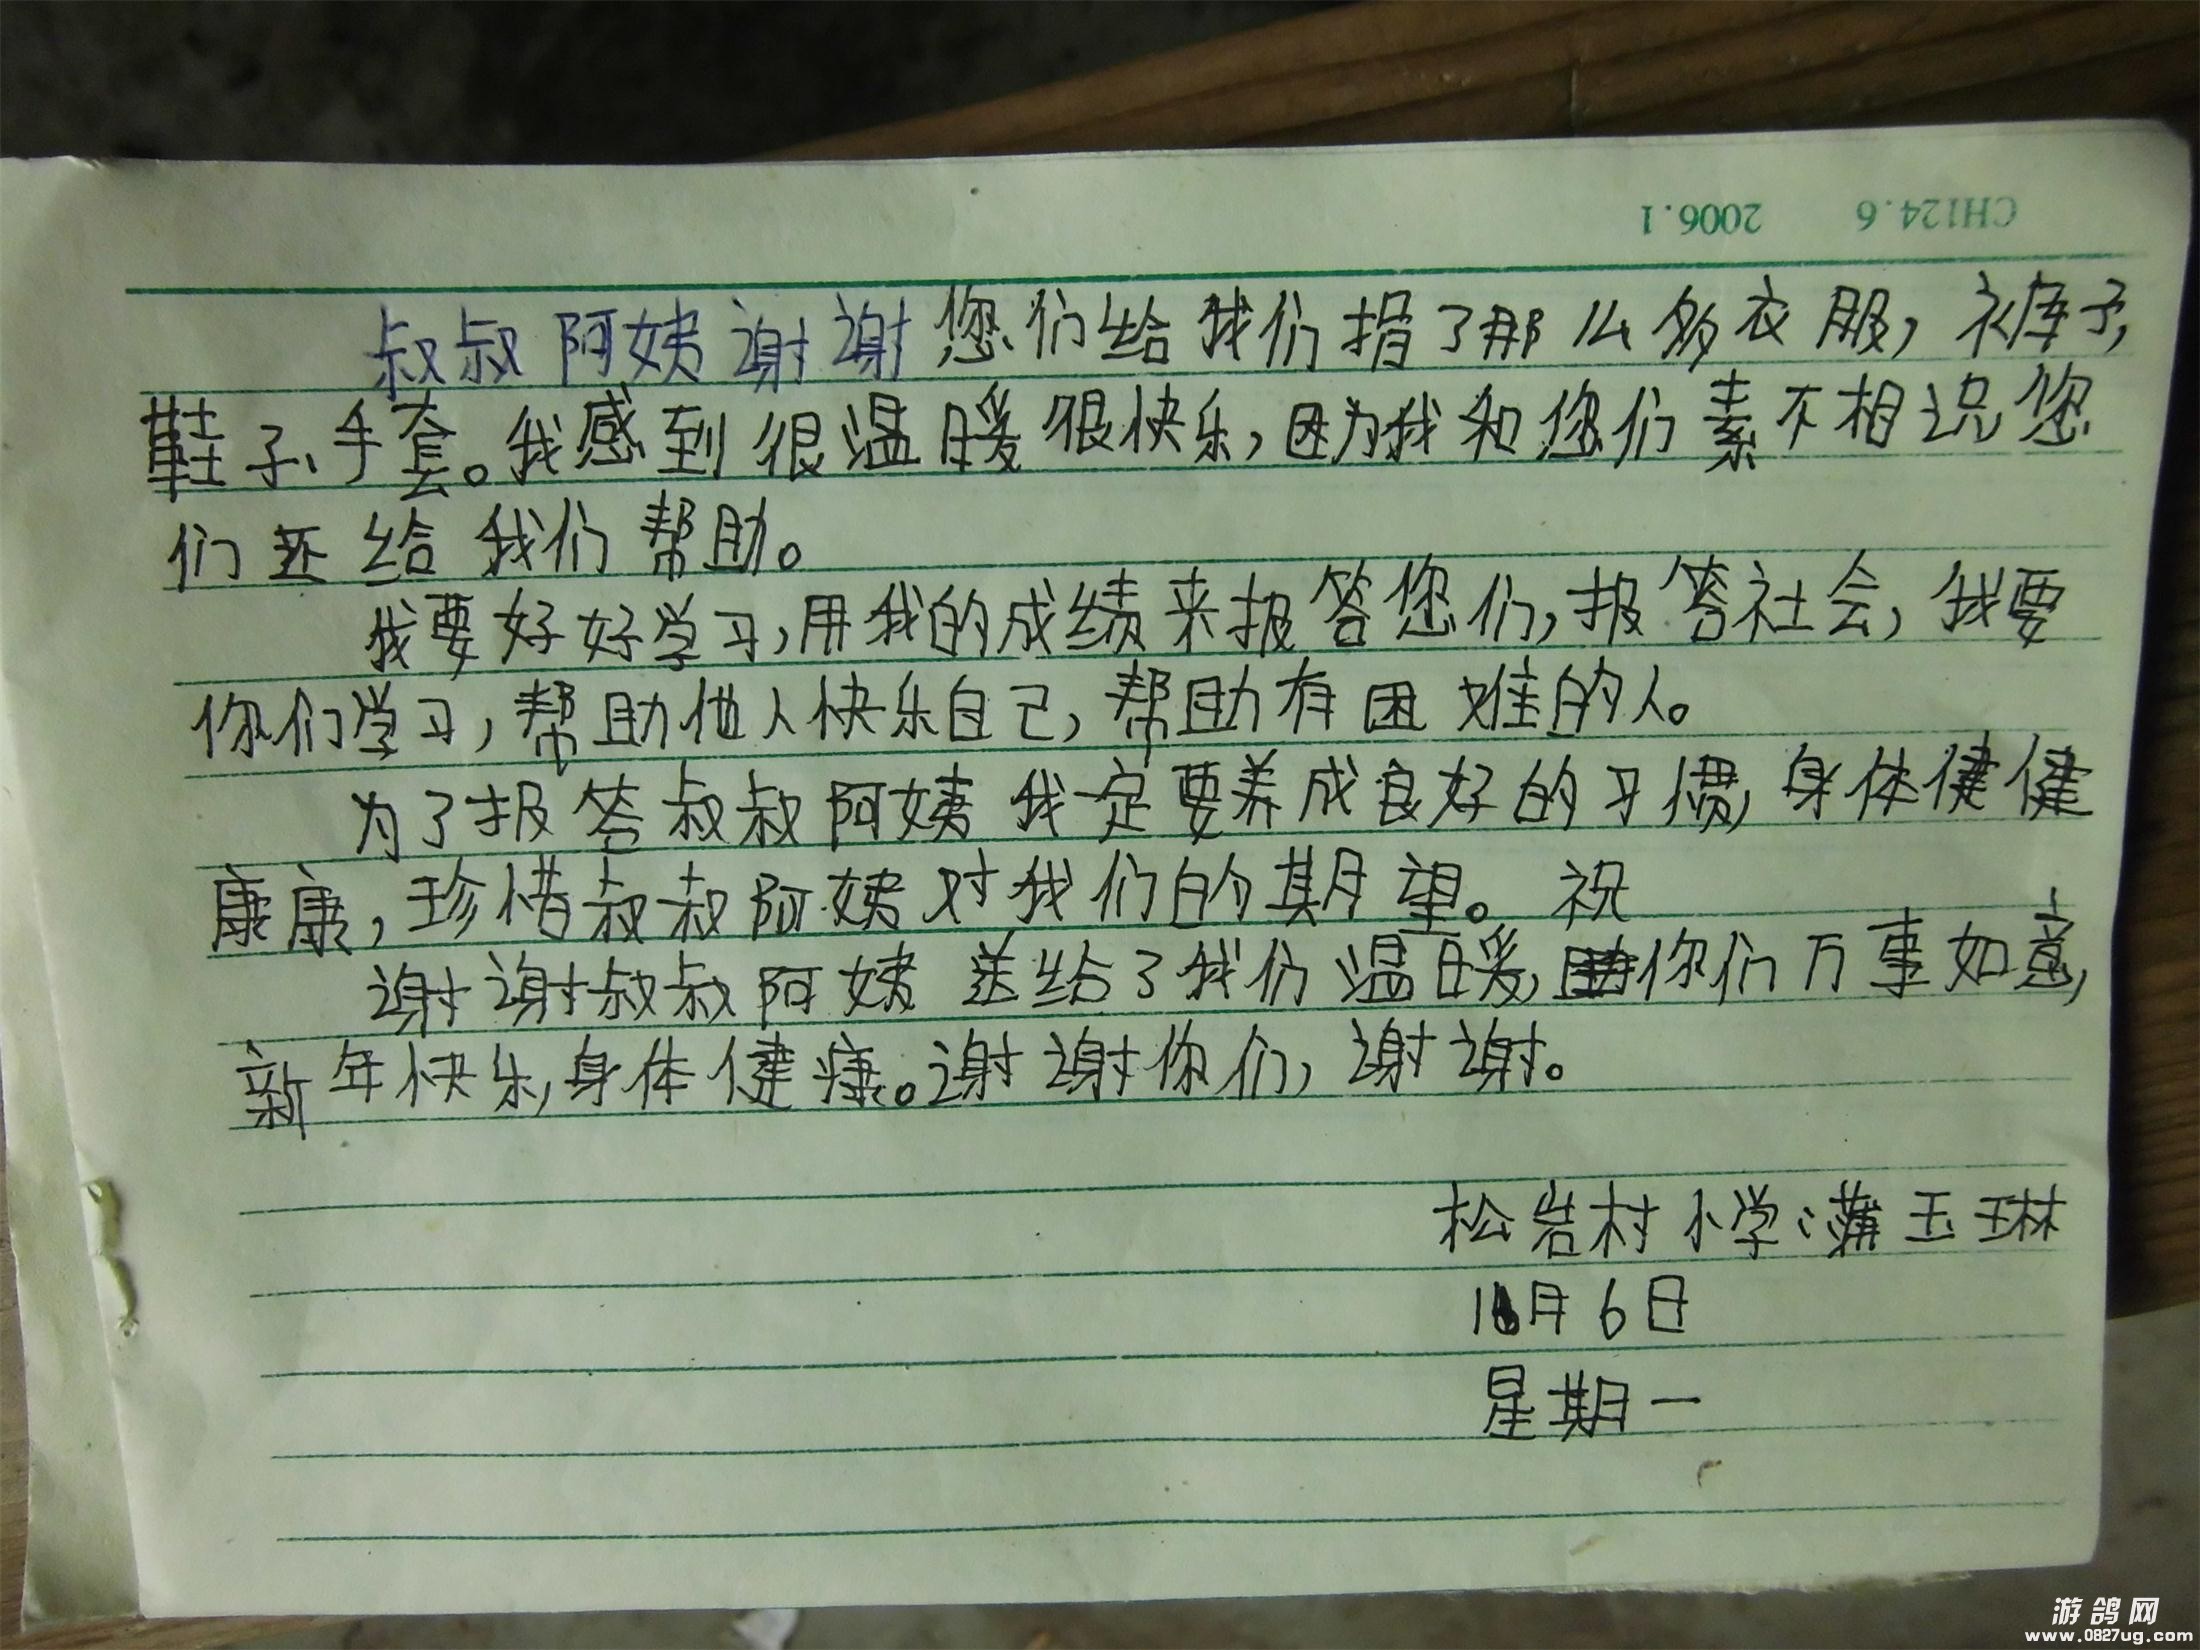 CH124.6 2006.1
叔叔阿姨谢谢您们给我们捐了那么多衣服，裤子，
鞋子、手套。我感到很温暖很快乐，因为我和您们素不相识您
们还给我们帮助。
我要好好学习，用我的成绩来报答您们，报答社会，我要
你们学习，帮助他人快乐自己，帮助有困难的人。
为了报答叔叔阿姨我一定要养成良好的习惯，身体健健
康康，珍惜叔叔阿姨对我们的期望。祝
谢谢叔叔阿姨送给了我们温暖，你们万事如意，
新年快乐，身体健康。谢谢你们，谢谢。
松岩村小学：蒲玉琳
月6日
星期一
游鸽网
www.0827ug.com